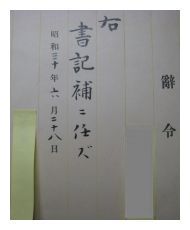 辭令
右
書記補ニ任ズ
昭和三十年六月二十八日